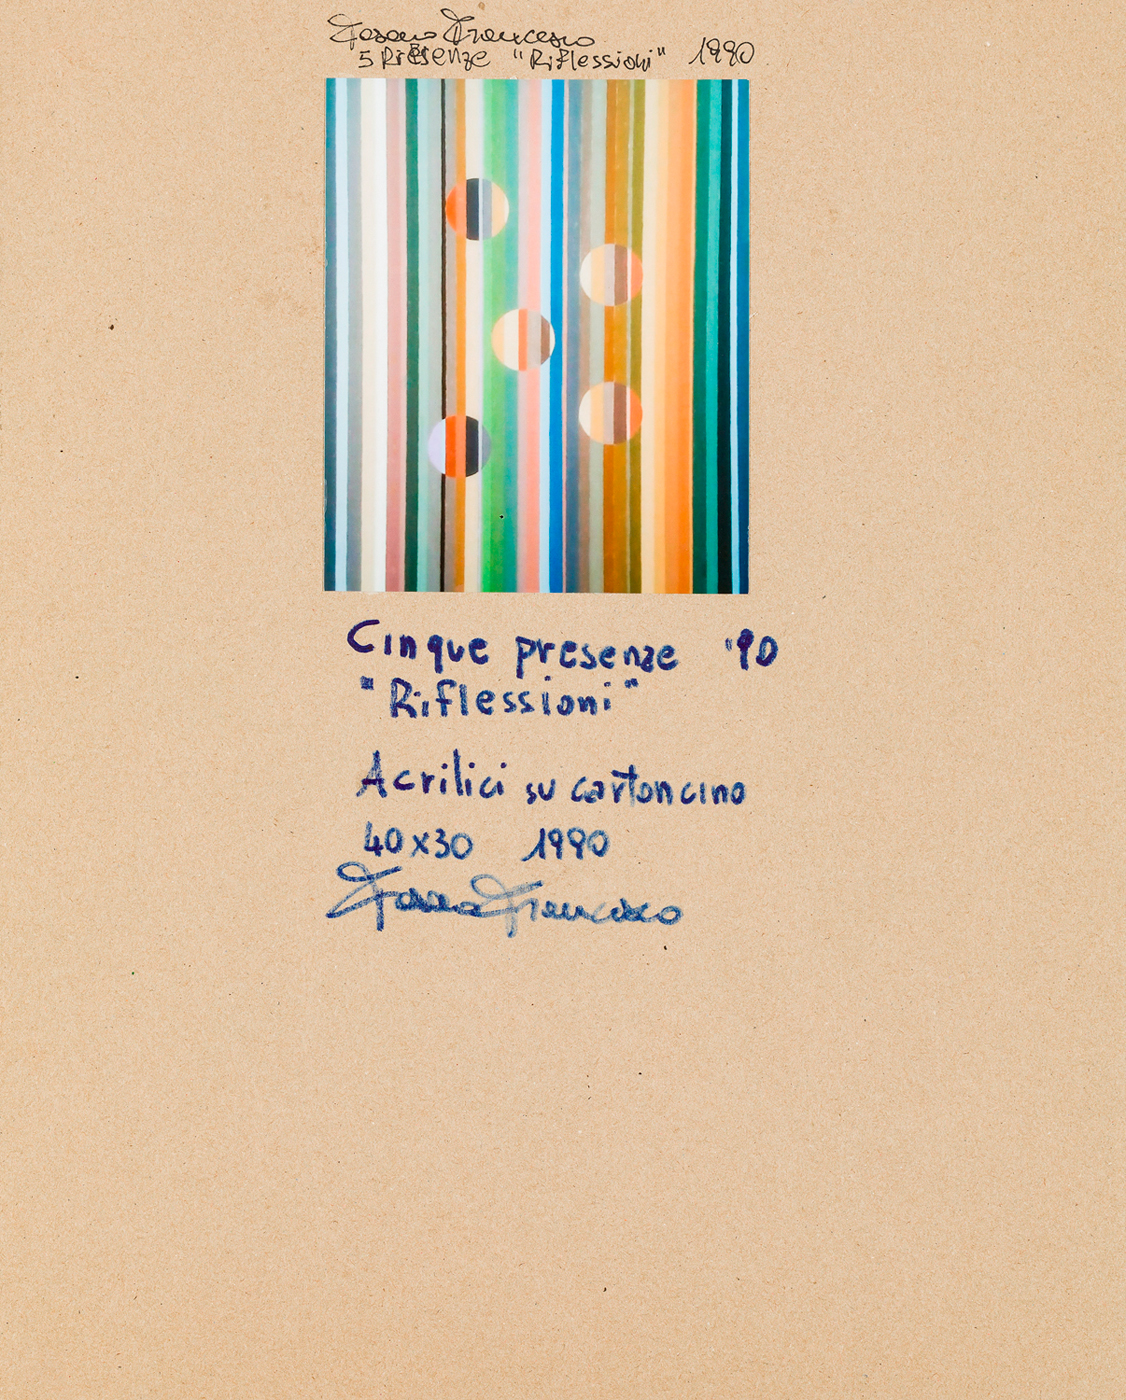 Fasano Francesco
5 Presenze "Riflessioni" 1990
Cinque presenze '90
"Riflessioni"
Acrilici su cartoncino
40x30 1990
Fasano Francesco